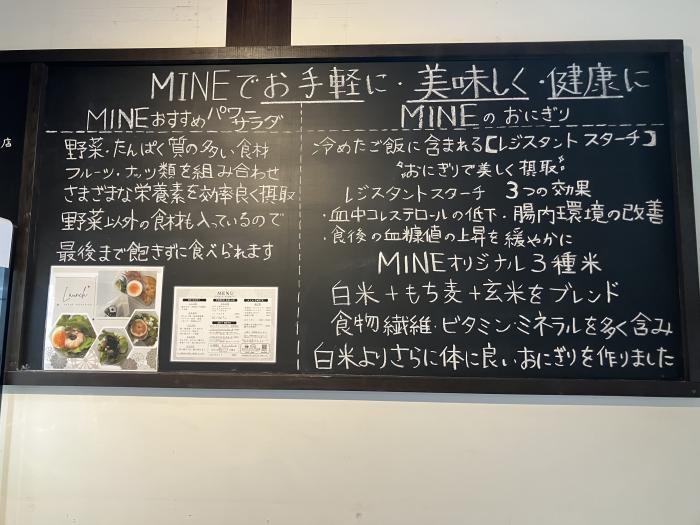 MINEでお手軽に・美味しく・健康に
MINEおすすめパワーサラダ
野菜・たんぱく質の多い食材
フルーツ・ナッツ類を組み合わせ
さまざまな栄養素を効率良く摂取
野菜以外の食材も入っているので
最後まで飽きずに食べられます
Lunch
MENU
MINEのおにぎり
冷めたご飯に含まれる【レジスタントスターチ】
"おにぎりで美しく摂取"
レジスタントスターチ 3つの効果
・血中コレステロールの低下・腸内環境の改善
・食後の血糖値の上昇を緩やかに
MINEオリジナル3種米
白米+もち麦+玄米をブレンド
食物繊維・ビタミン・ミネラルを多く含み
白米よりさらに体に良いおにぎりを作りました
店